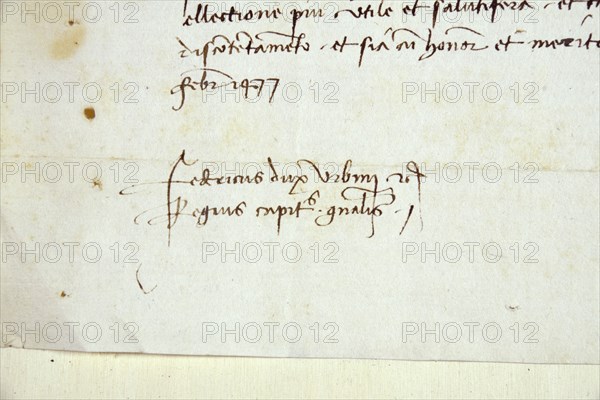 ellectione piu utile et salutifera . et
discotentameto . et sia cu honor et merito
febr 1477
Federicus dux Urbini
Regius capit⁹ . gnalis
PHOTO 12 PHOTO 12 PHOTO 12
PHOTO 12 PHOTO 12 PHOTO 12
PHOTO 12 PHOTO 12 PHOTO 12
PHOTO 12 PHOTO 12 PHOTO 12